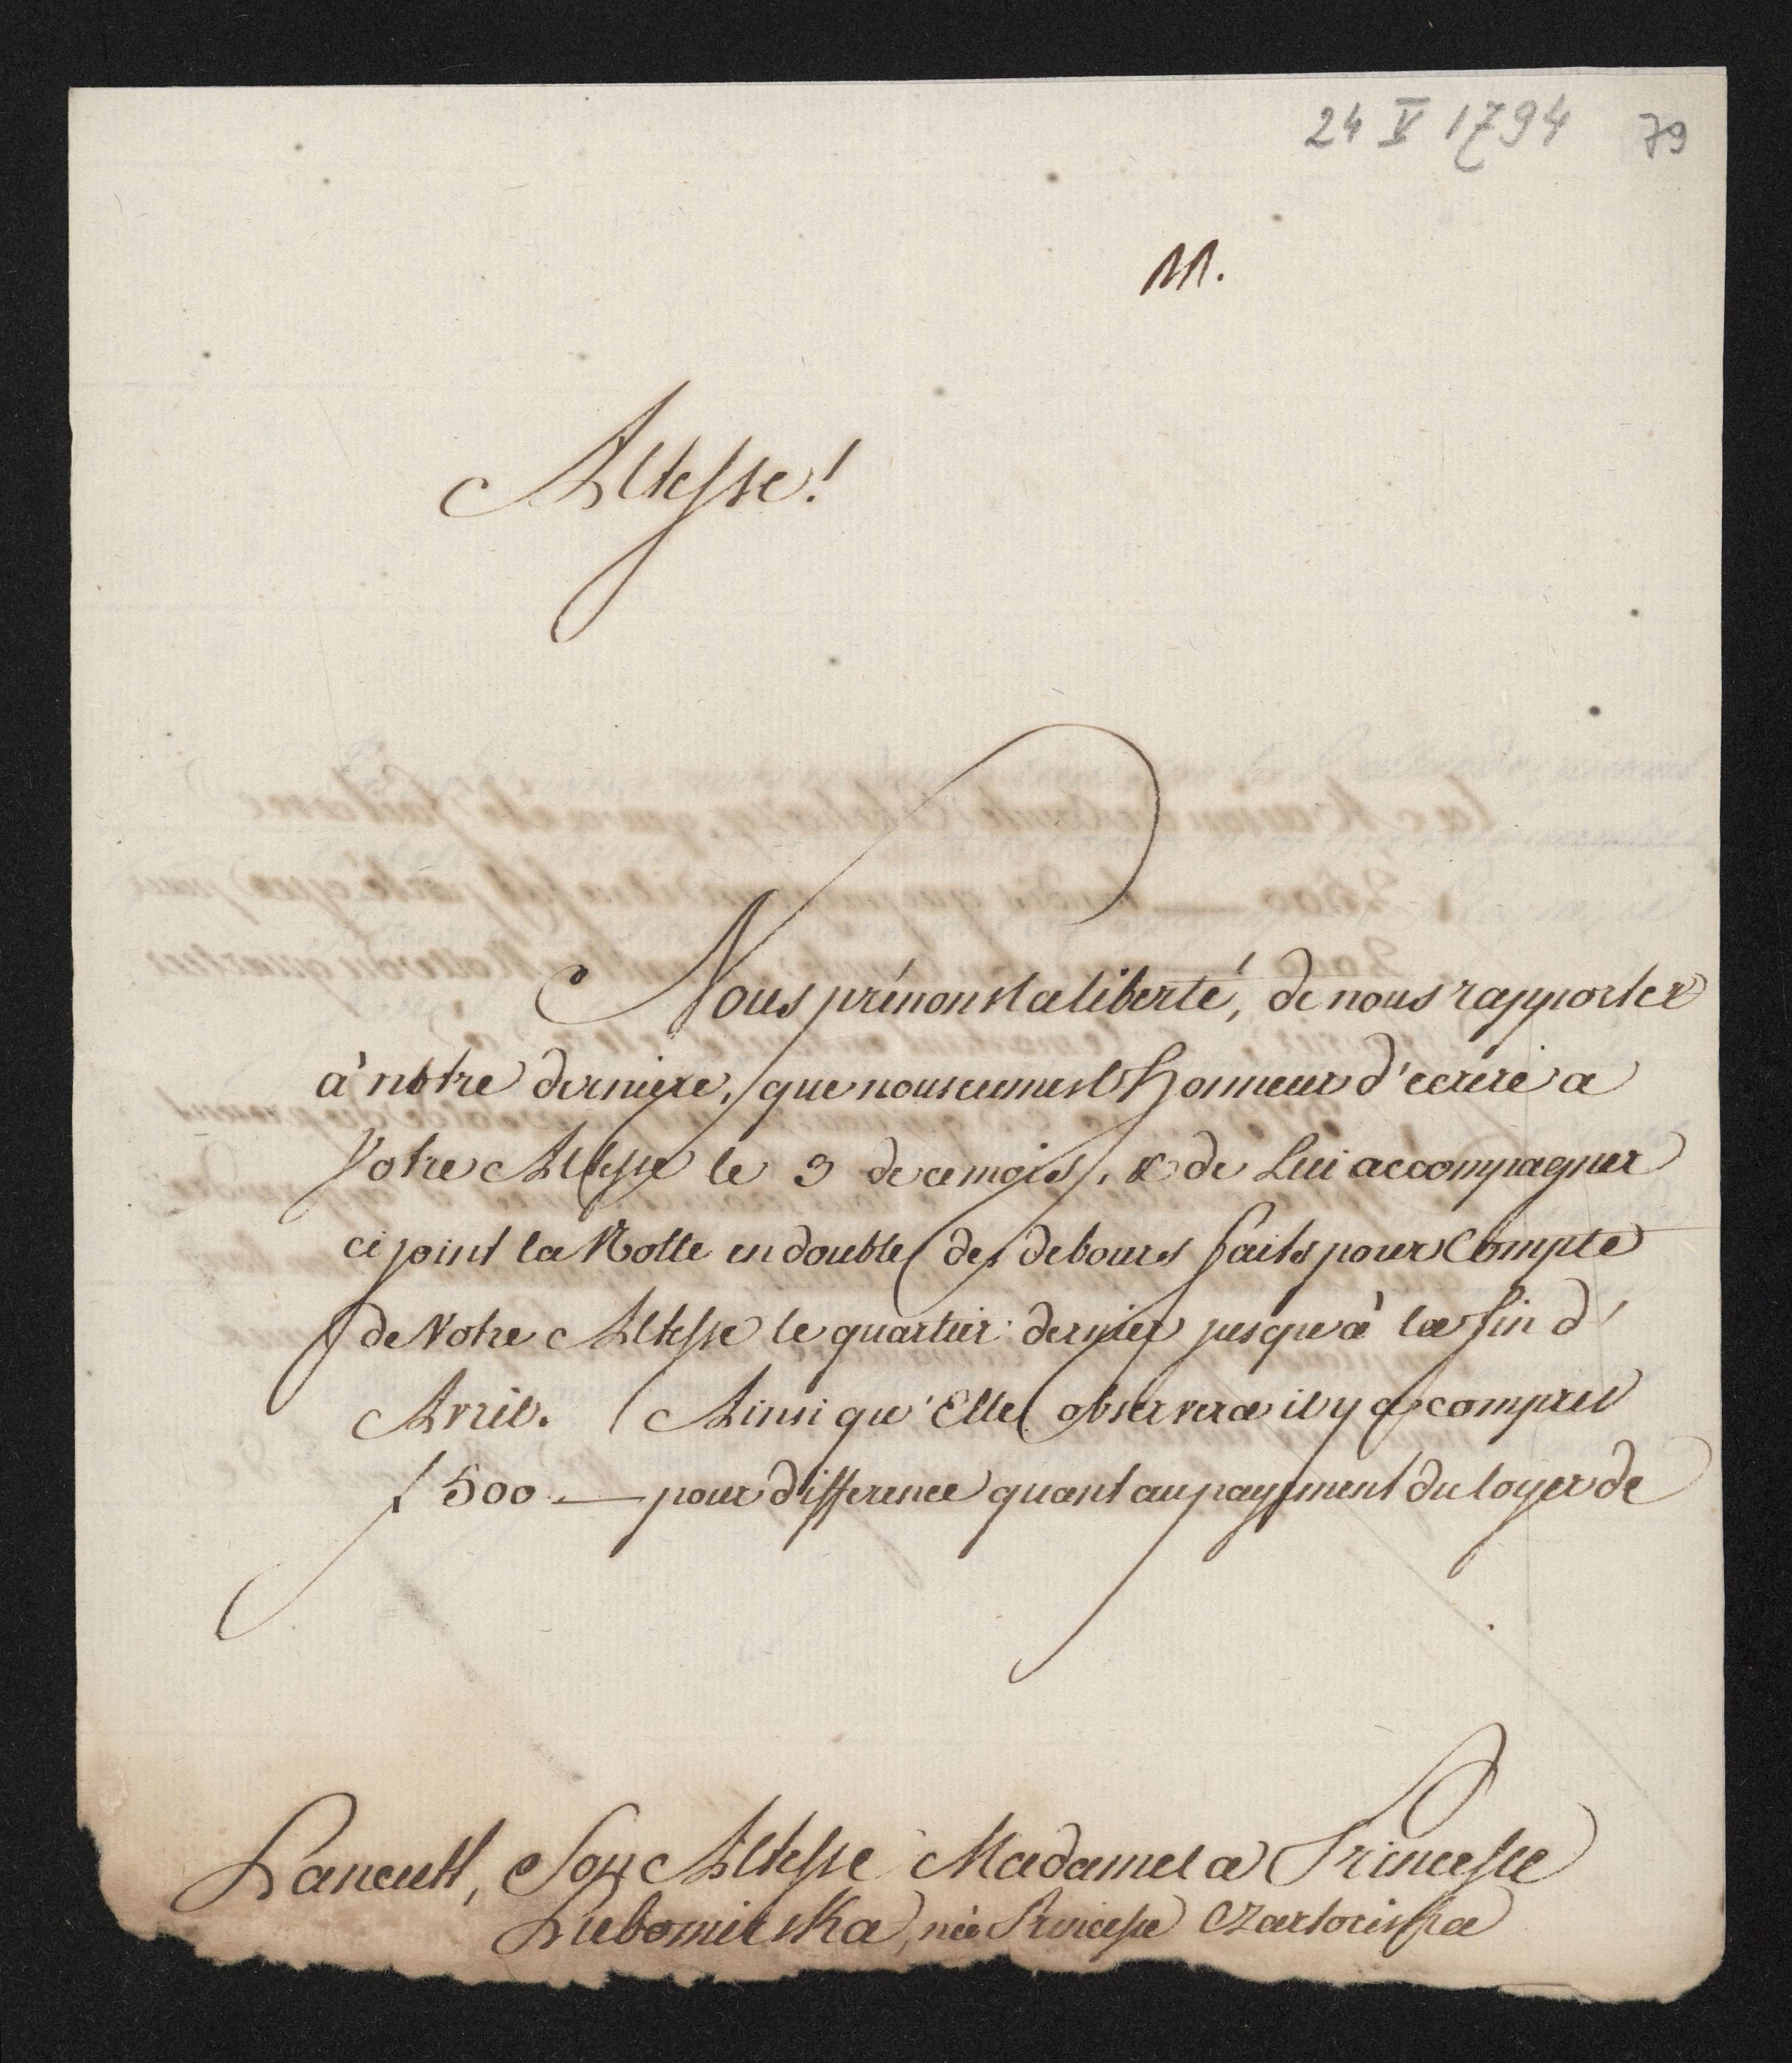 24 V 1794 79
M.
Altesse!
Nous prénons la liberté, de nous rapporter
à nôtre derniere, que nous eumes l'Honneur d'ecrire a
Votre Altesse le 3 de ce mois, & de Lui accompagner
ci joint la Notte en double des debours faits pour Compte
de Votre Altesse le quartier dernier jusqu'à la fin d'
Avril. Ainsi qu'Elle observera il y a compris
f 500 — pour difference quant au payement du loyer de
Lancutt, Son Altesse Madame la Princesse
Lubomirska, née Princesse Czartoriska